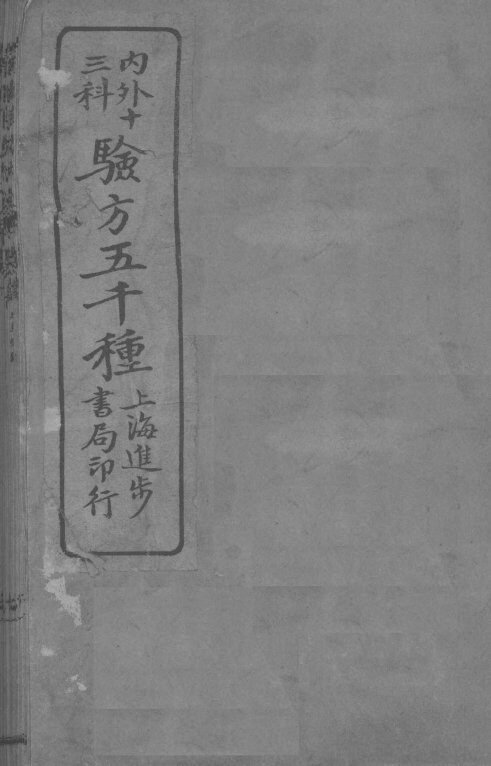 内外十
三科
驗方五千種
上海進步
書局印行